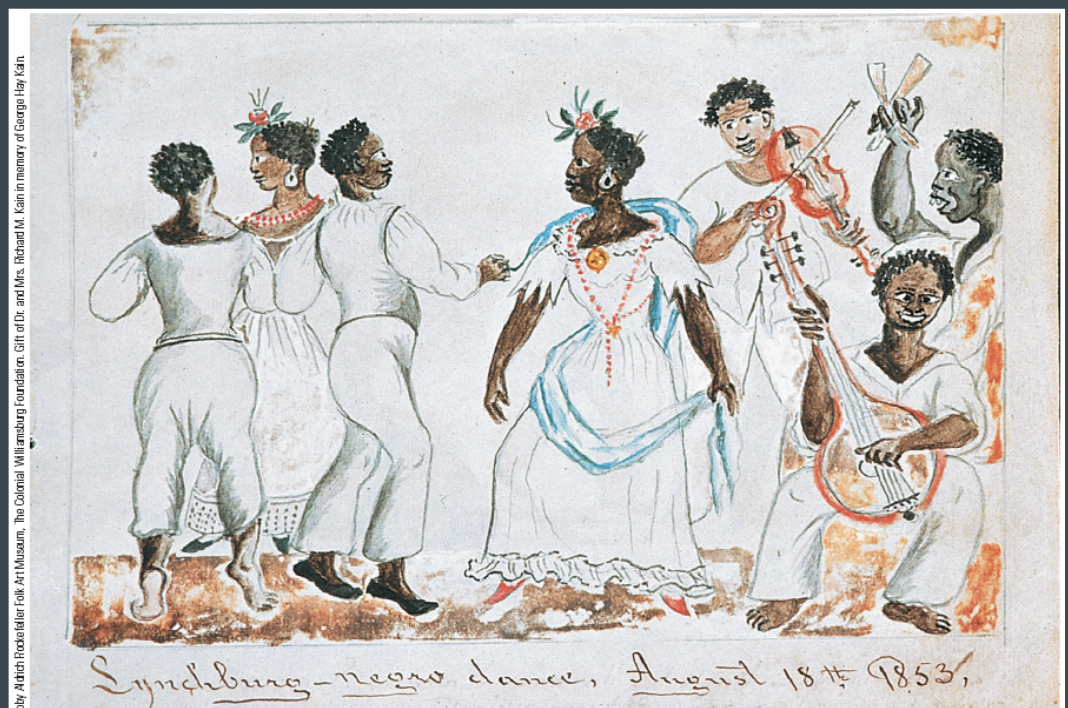 Lynchburg – negro dance, August 18th 1853,
by Aldrich Rockefeller Folk Art Museum, The Colonial Williamsburg Foundation. Gift of Dr. and Mrs. Richard M. Kain in memory of George Hay Kain.